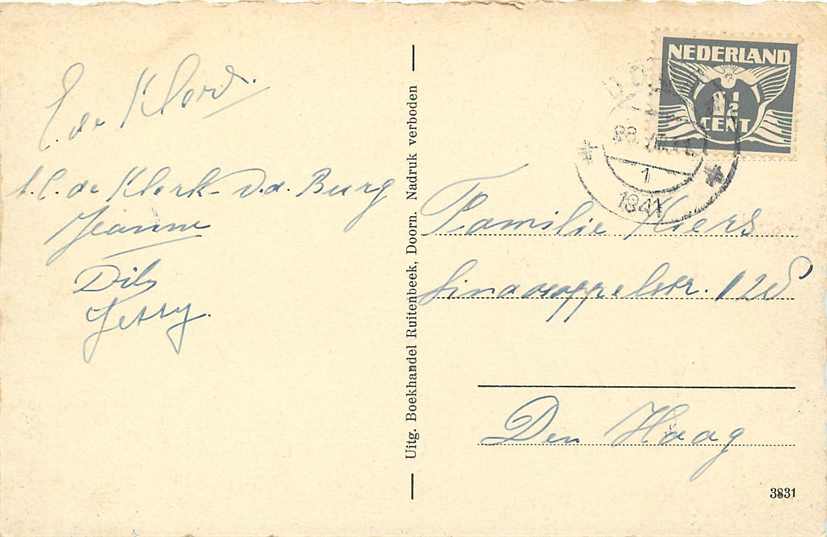 E. de Klerk.
A.C. de Klerk - v.d. Burg
Jeanne
Dils
Jetty.
Uitg. Boekhandel Ruitenbeek, Doorn. Nadruk verboden
NEDERLAND
1½
CENT
1
1941
Familie Kiers
Sinaasappelstr. 128
Den Haag
3831